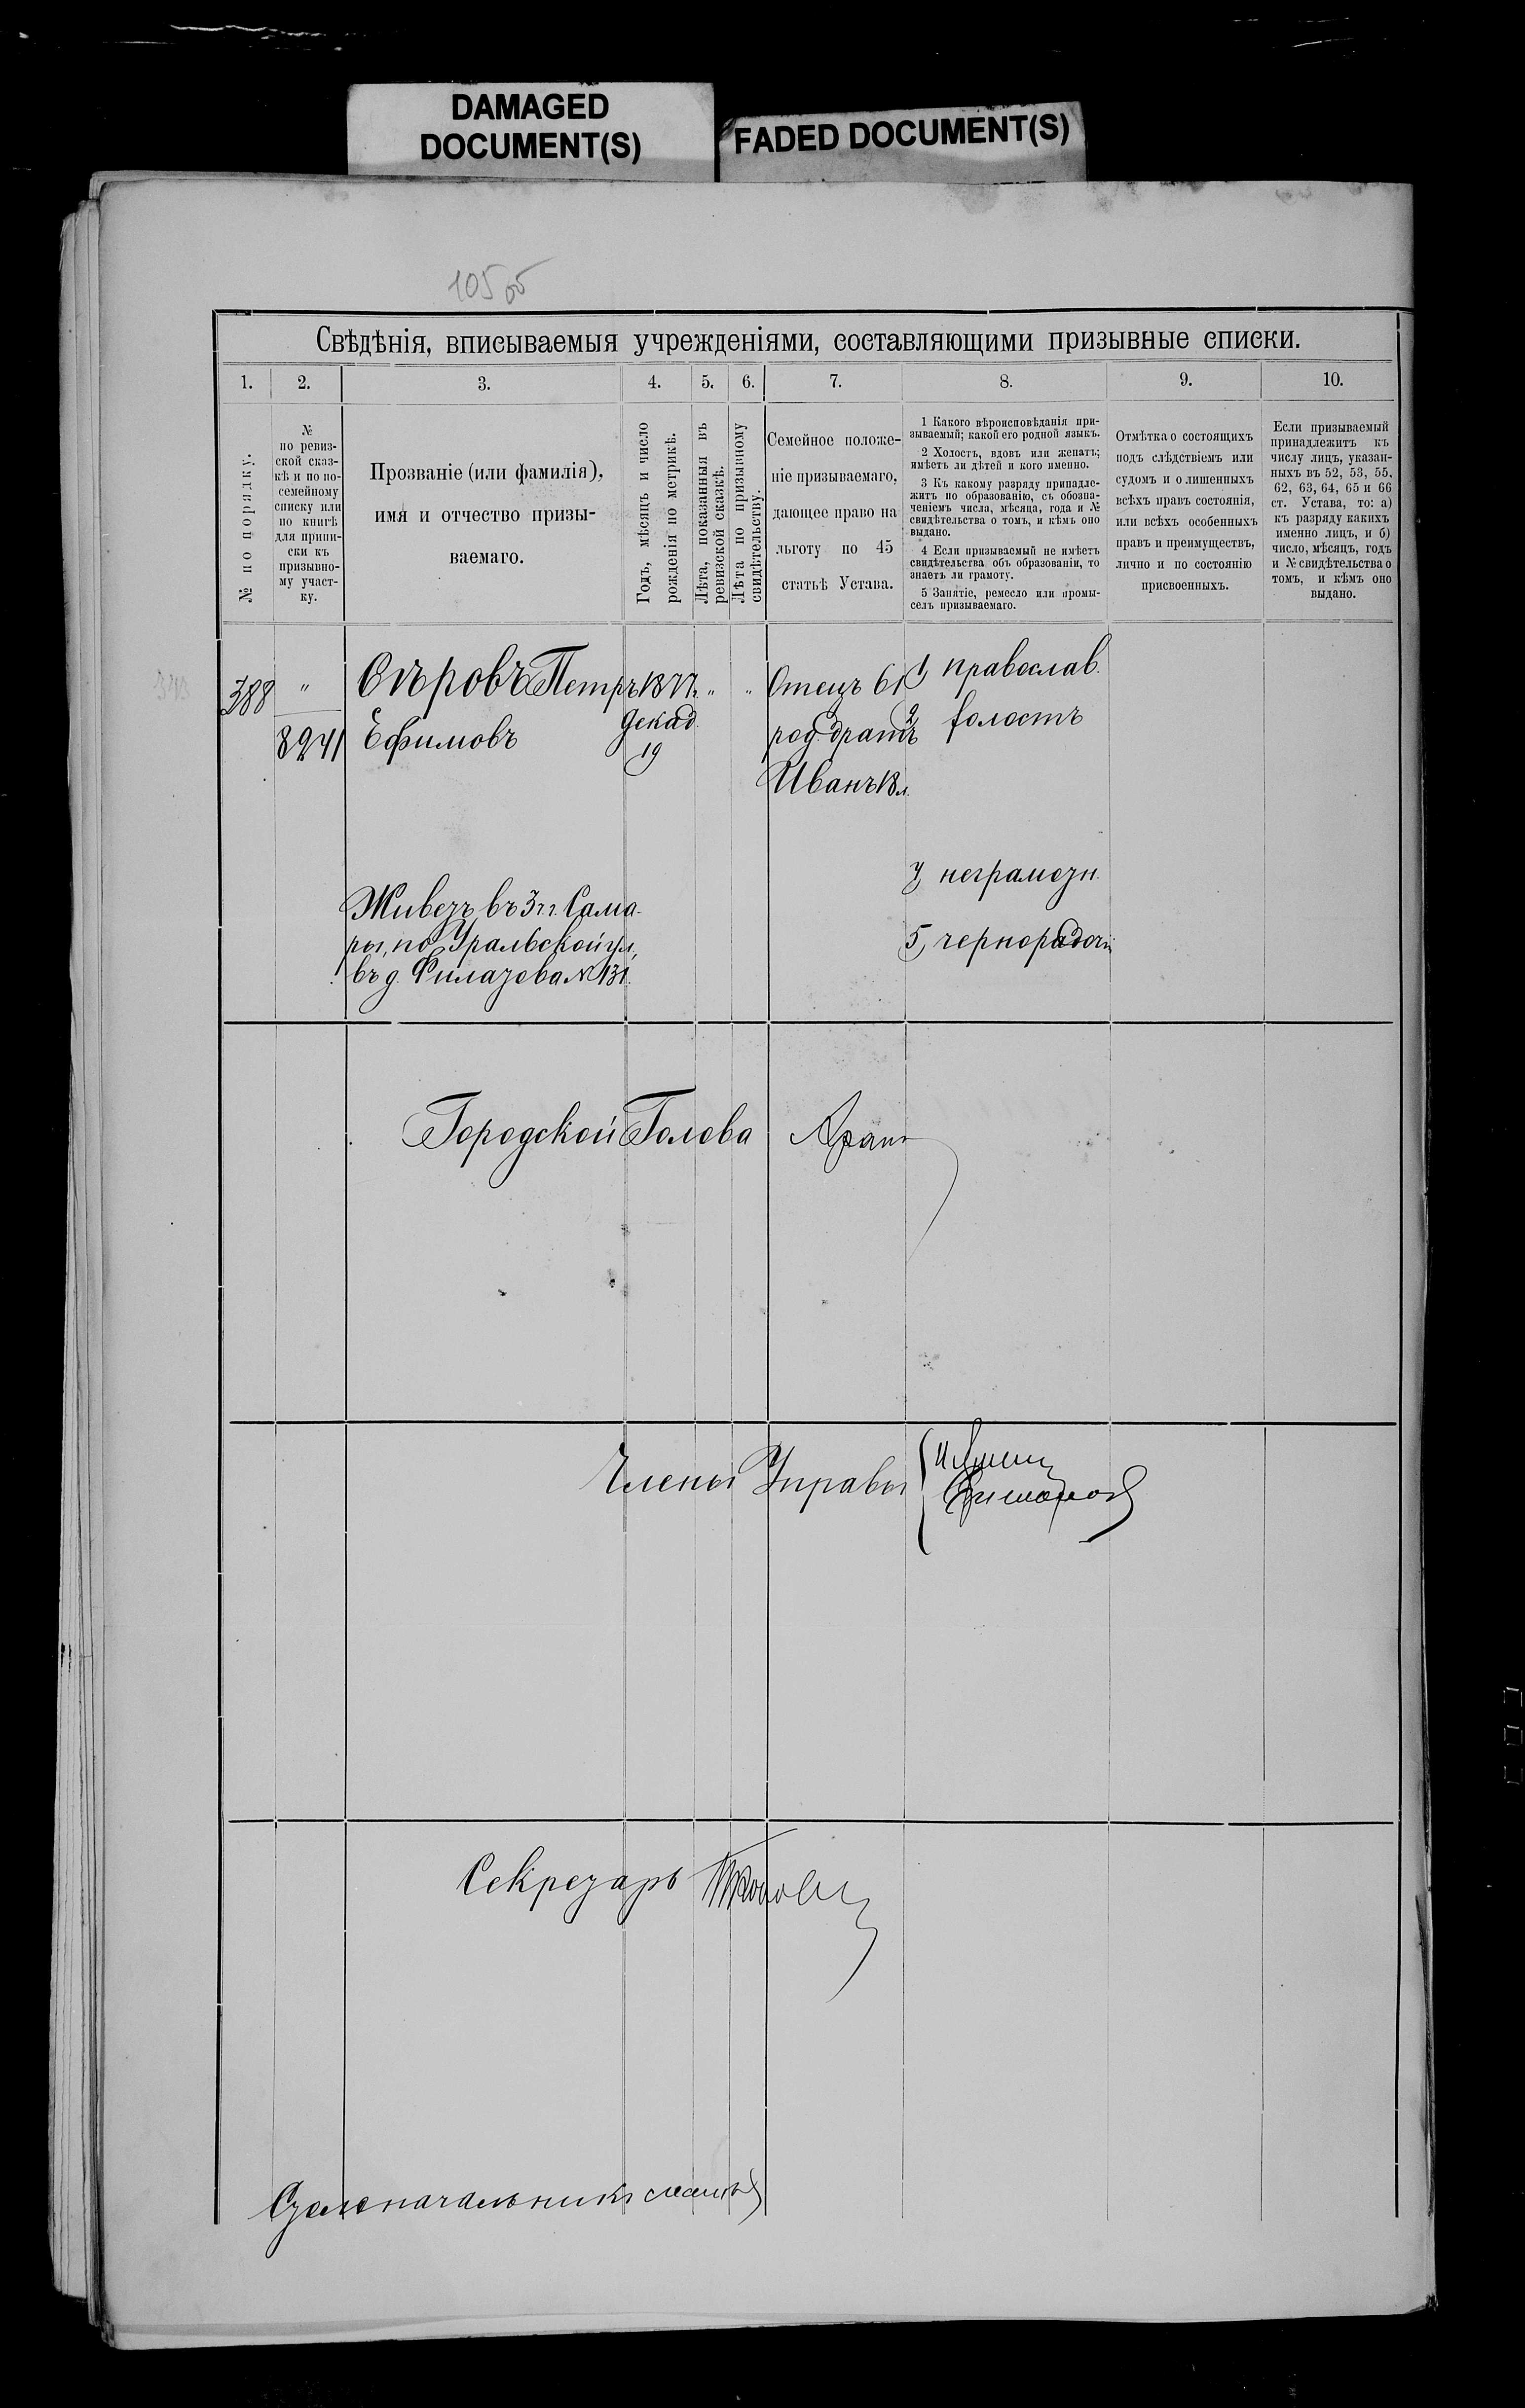 DAMAGED
DOCUMENT(S)
FADED DOCUMENT(S)
105 об
Свѣдѣнія, вписываемыя учрежденіями, составляющими призывные списки.
1. 2. 3. 4. 5. 6. 7. 8. 9. 10.
№ по порядку.
№
по ревиз-
ской сказ-
кѣ и по по-
семейному
списку или
по книгѣ
для припи-
ски къ
призывно-
му участ-
ку.
Прозваніе (или фамилія),
имя и отчество призы-
ваемаго.
Годъ, мѣсяцъ и число
рожденія по метрикѣ.
Лѣта, показанныя въ
ревизской сказкѣ.
Лѣта по призывному
свидѣтельству.
Семейное положе-
ніе призываемаго,
дающее право на
льготу по 45
статьѣ Устава.
1 Какого вѣроисповѣданія при-
зываемый; какой его родной языкъ.
2 Холостъ, вдовъ или женатъ;
имѣетъ ли дѣтей и кого именно.
3 Къ какому разряду принадле-
житъ по образованію, съ обозна-
ченіемъ числа, мѣсяца, года и №
свидѣтельства о томъ, и кѣмъ оно
выдано.
4 Если призываемый не имѣетъ
свидѣтельства объ образованіи, то
знаетъ ли грамоту.
5 Занятіе, ремесло или промы-
селъ призываемаго.
Отмѣтка о состоящихъ
подъ слѣдствіемъ или
судомъ и о лишенныхъ
всѣхъ правъ состоянія,
или всѣхъ особенныхъ
правъ и преимуществъ,
лично и по состоянію
присвоенныхъ.
Если призываемый
принадлежитъ къ
числу лицъ, указан-
ныхъ въ 52, 53, 55,
62, 63, 64, 65 и 66
ст. Устава, то: а)
къ разряду какихъ
именно лицъ, и б)
число, мѣсяцъ, годъ
и № свидѣтельства о
томъ, и кѣмъ оно
выдано.
388
"
8241
Сѣровъ Петръ
Ефимовъ
1877
декаб.
19
"
"
Отецъ 61
род. братъ
Иванъ 13 л.
1, православ.
2, холостъ
4, неграмотн.
5, чернорабочій
Живетъ въ 3 ч. г. Сама-
ры, по Уральской ул.,
въ д. Филатова № 131.
Городской Голова
Члены Управы
Секретарь
Столоначальникъ